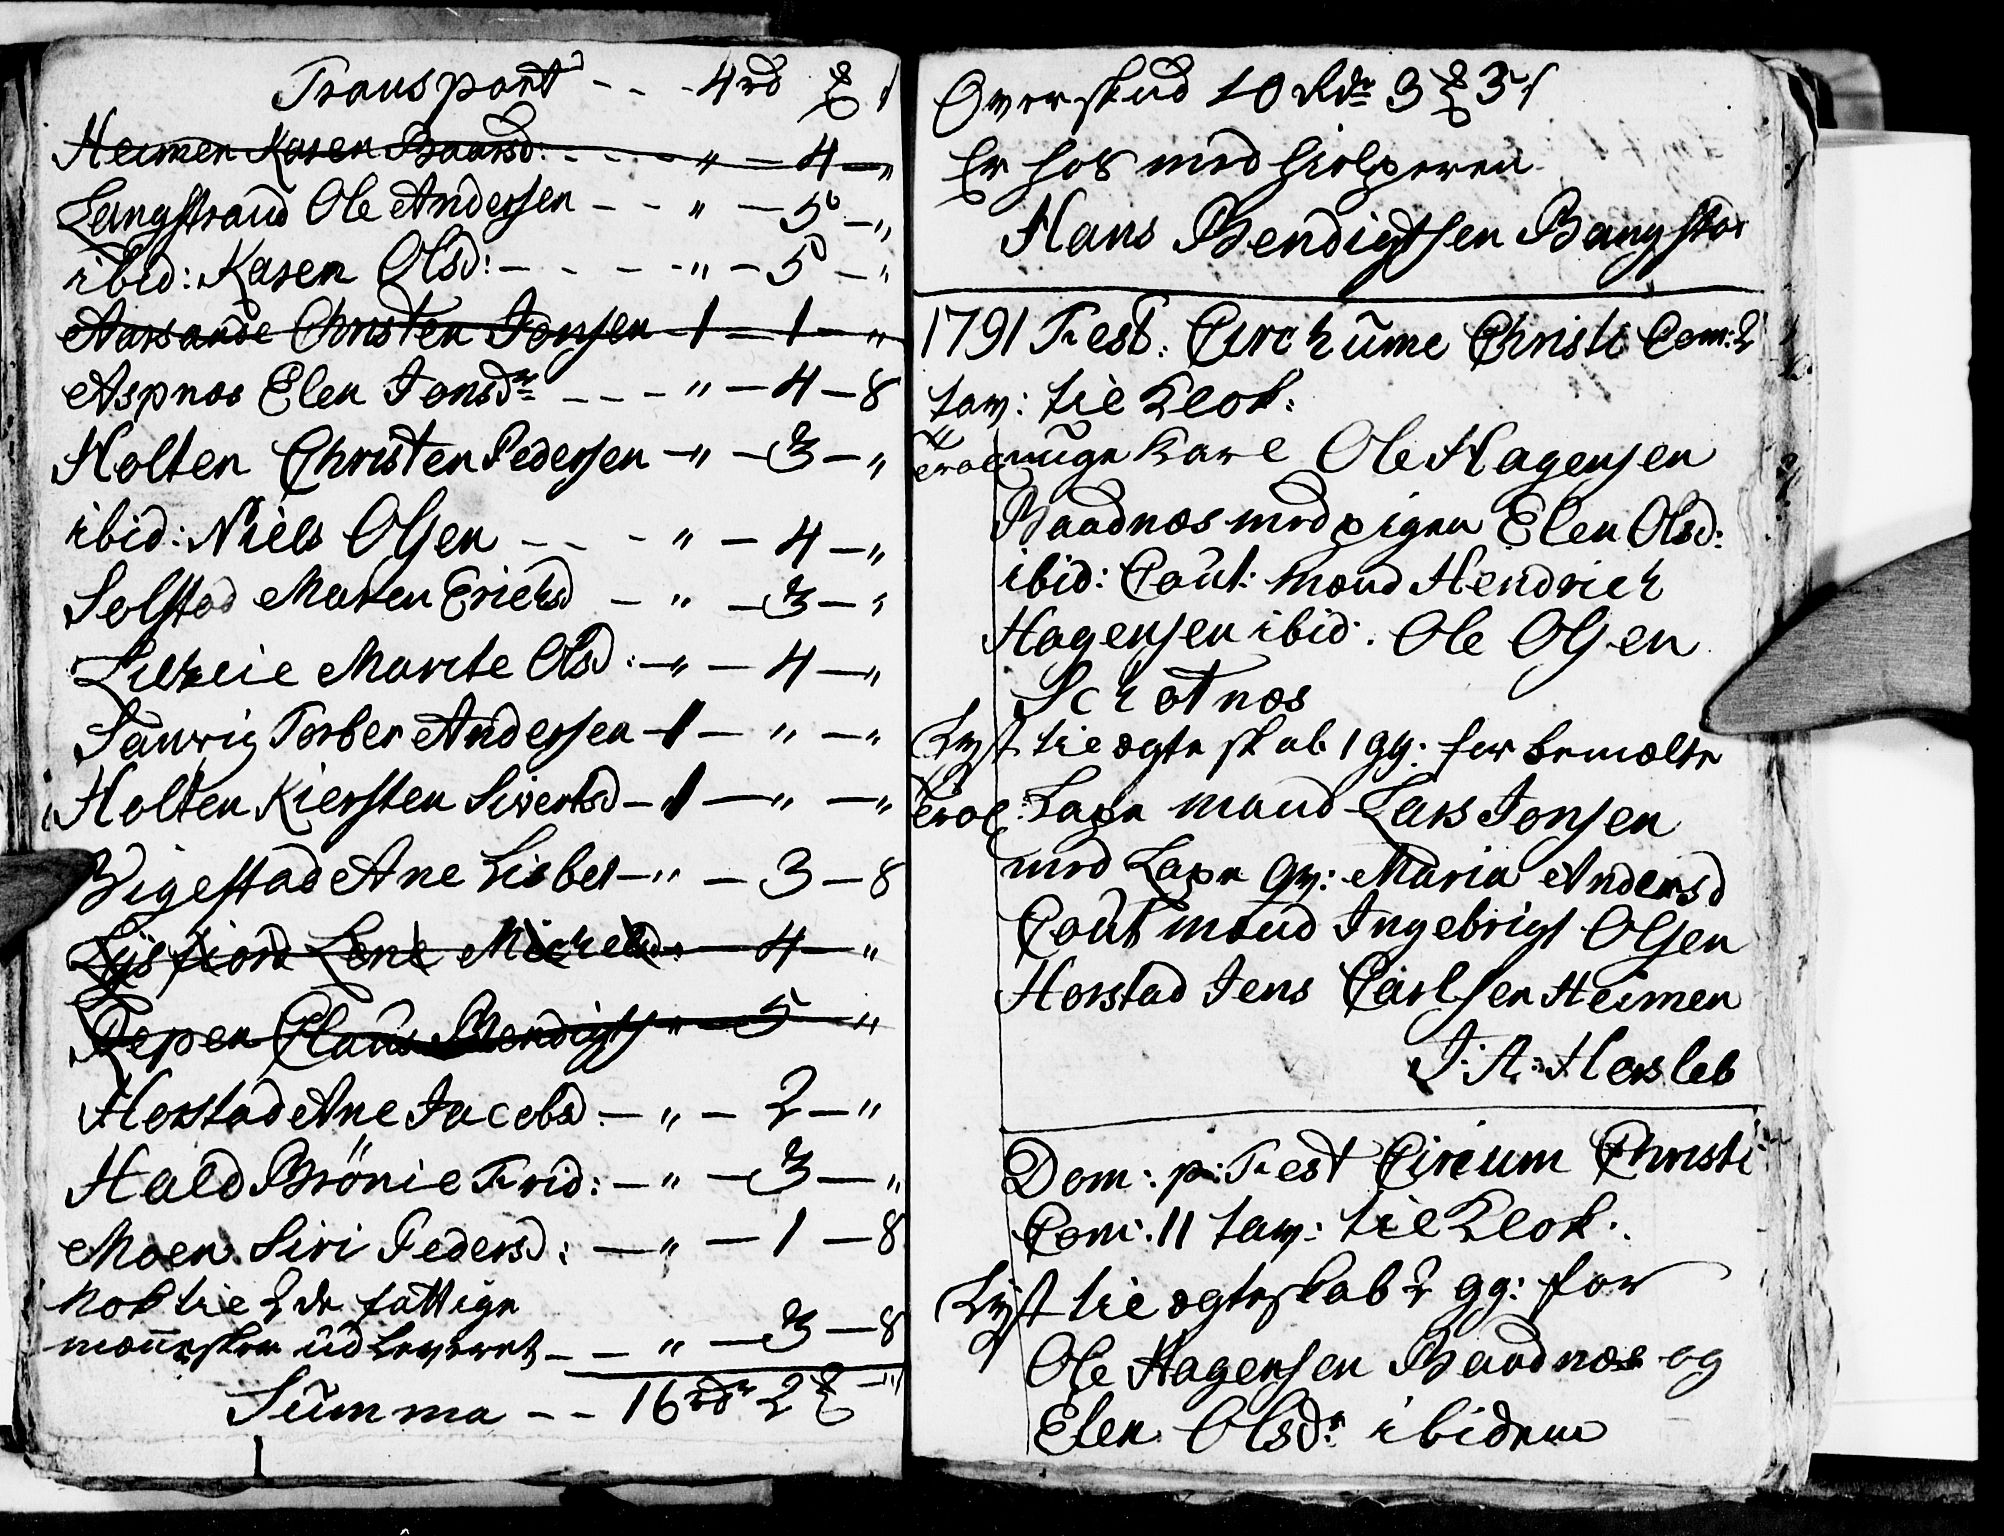 Transport - - - 4 rd
Heimen Karen Baarsd: - - - " - 4 - "
Langstrand Ole Andersen - - " - 5 - "
ibid: Karen Olsd: - - - - " - 5 - "
Aarsande Christen Jonsen 1 - 1 - "
Aspnæs Elen Jonsdr - - - " - 4 - 8
Holten Christen Pedersen - " - 3 - "
ibid: Niels Olsen - - - " - 4 - "
Solstad Maren Erichsd - " - 3 - "
Marite Olsd: - " - 4 - "
Torber Andersen - 1 - " - "
Holten Kiersten Sivertsd - 1 - " - "
Vigestad Ane Lisbet - " - 3 - 8
Lysfiord Lene Michelsd: - 4 - "
Repen Claus Bendigts " - 5 "
Horstad Ane Jacobsd: - " - 2 - "
Hald Brönie Frid: - " - 3 - "
Moen Siri Pedersd: - " - 1 - 8
Nok til 2de fattige
mennesker üdleveret - - " - 3 - 8
Summa - - 16 rdr 2
Overskud 10 Rdr 3
Er hos medhielperen
Hans Bendigtsen
1791 Fest. Circhüme Christi Com: 2
tav: til Klok:
Trol unge Karl Ole Hagensen
Baadnæs med pigen Elen Olsd:
ibid: Caut: mænd Hendrich
Hagensen ibid. Ole Olsen
Schotnæs
Lyst til ægteskab 1 gg: for bemelte
Trol: Lape mand Lars Jonsen
med Lape qv: Maria Andersd
Caut mænd Ingebrigt Olsen
Horstad Jens Carlsen Heimen
J: A: Hersleb
Dom: p: Fest Circum Christi
Com: 11 tav: til Klok:
Lyst til ægteskab 2 gg: for
Ole Hagensen Baadnæs og
Elen Olsdr ibidem